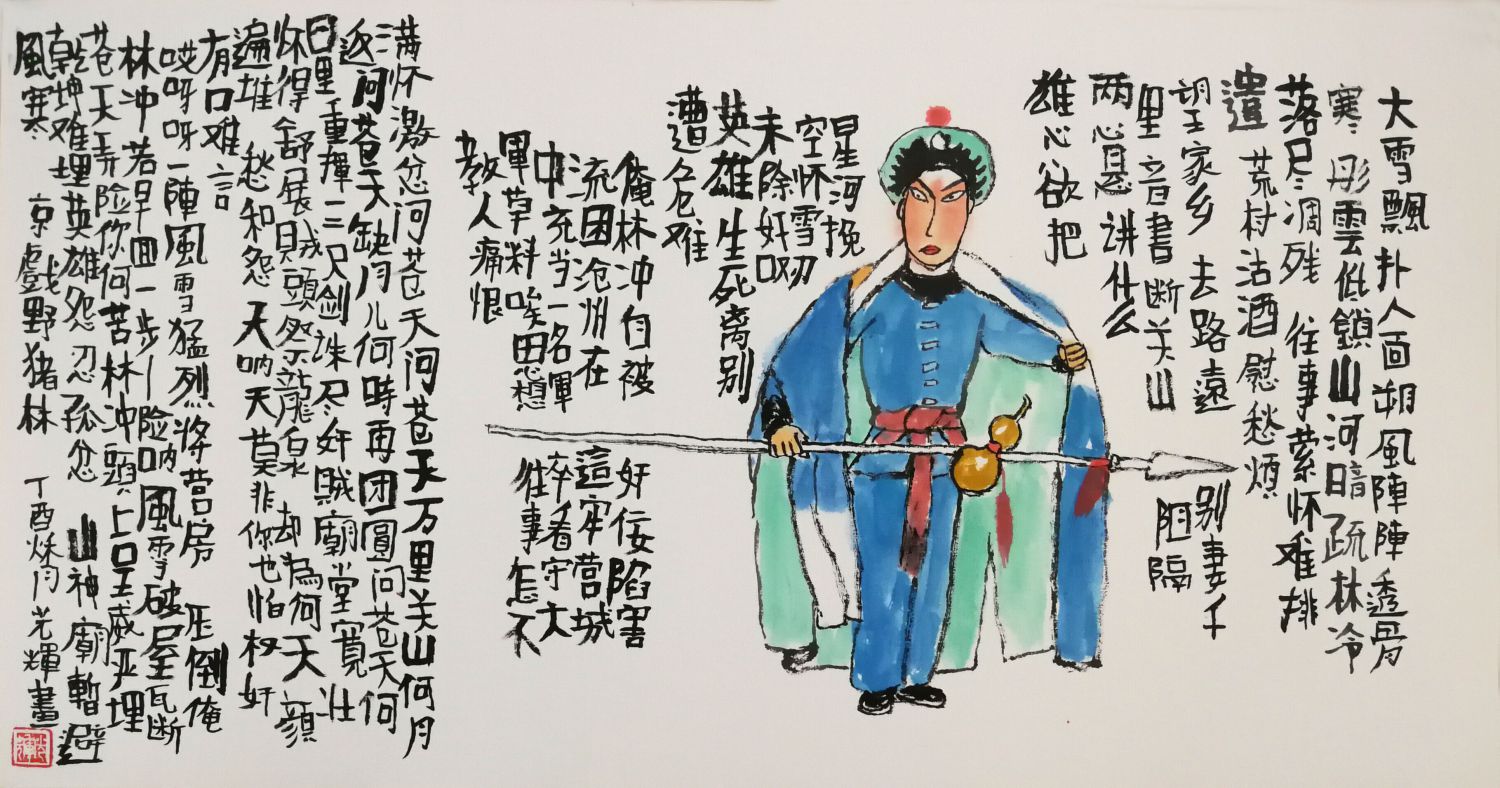 大雪飄扑人面朔風陣陣透骨
寒彤雲低鎖山河暗疏林冷
落尽凋残往事萦怀难排
遣荒村沽酒慰愁烦
望家乡去路遠别妻千
里音書断关山阻隔
两心悬讲什么
雄心欲把
星河挽
空怀雪刃
未除奸叹
英雄生死离别
遭危难
俺林冲自被奸佞陷害
流困沧州在這牢营城
中充当一名軍卒看守大
軍草料唉思想往事怎不
教人痛恨
满怀激忿问苍天问苍天万里关山何月
返问苍天缺月儿何時再团圓问苍天何
日里重揮三尺剑诛尽奸贼廟堂寬壮
怀得舒展贼頭祭龍泉却為何天顔
遍堆愁和怨天呐天莫非你也怕权奸
有口难言
哎呀呀一陣風雪猛烈将营房压倒俺
林冲若早回一步险呐風雪破屋瓦断
苍天弄险你何苦林冲頭上呈威严埋
乾坤难埋英雄怨忍孤忿山神廟暫避
風寒京戲野猪林丁酉秌月光輝畫